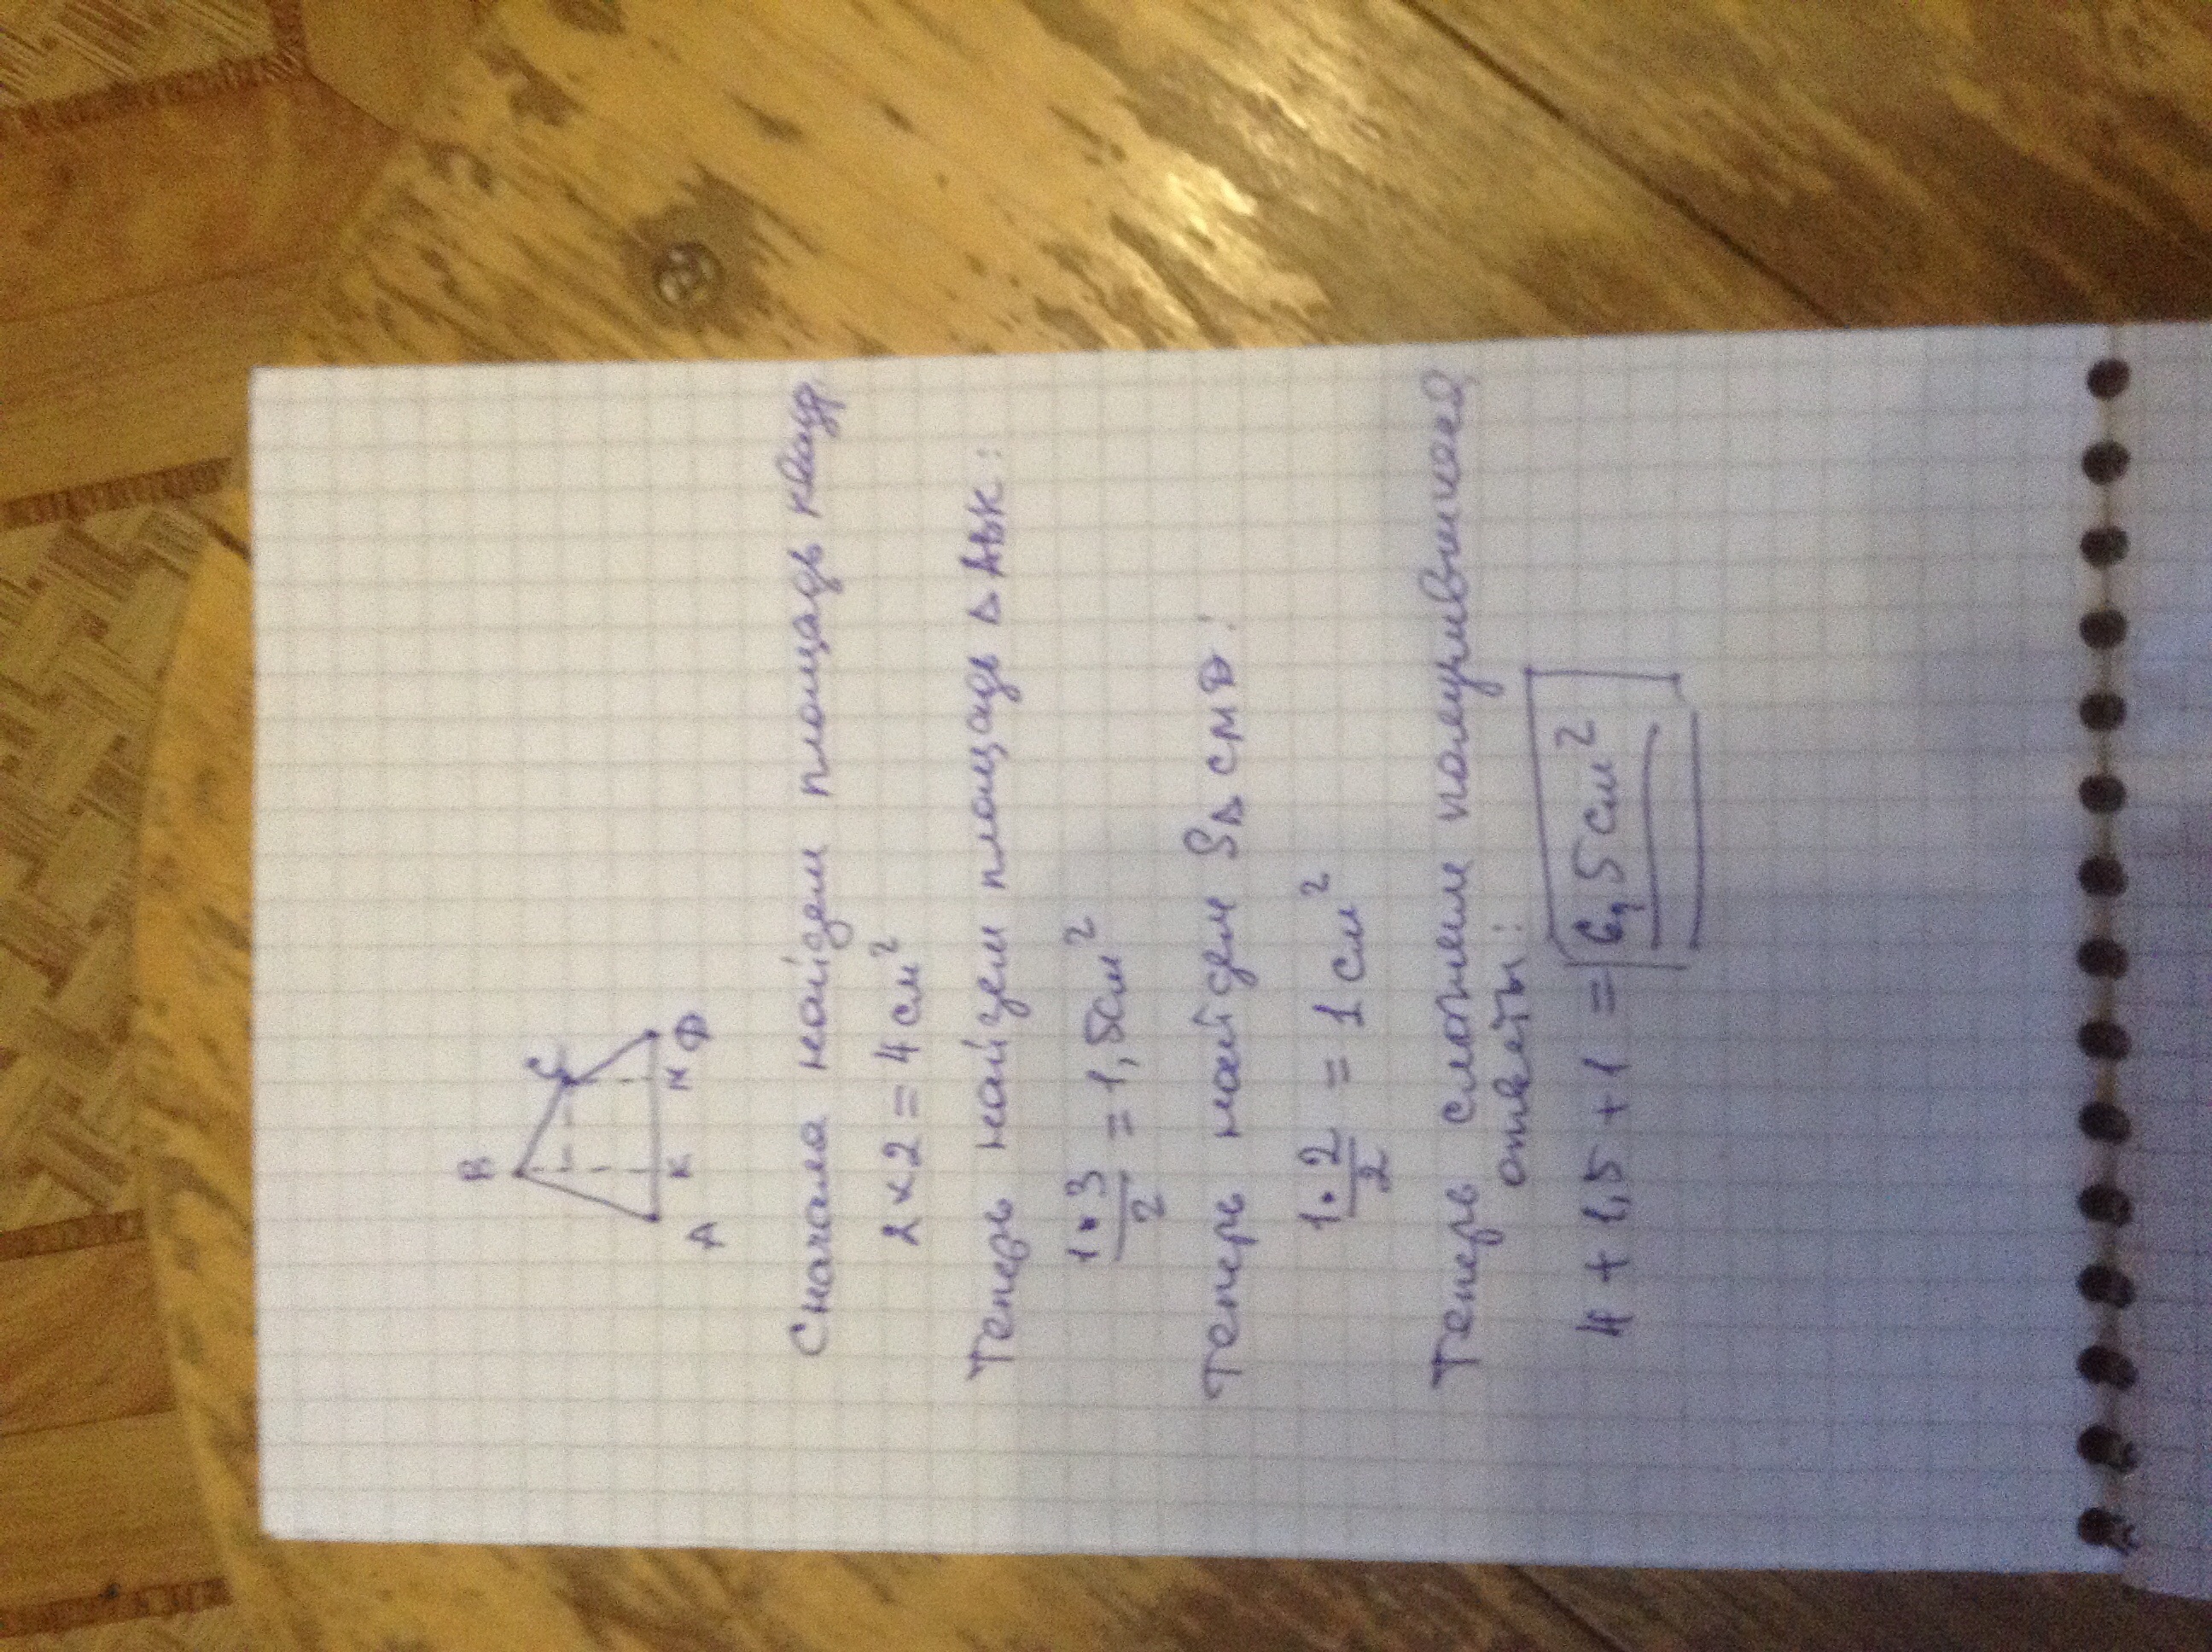 B
C
A K M D
Сначала найдем площадь квадр
2 × 2 = 4 см²
Теперь найдем площадь Δ АВК:
1 • 3 / 2 = 1,5см²
Теперь найдем SΔ СМD:
1 • 2 / 2 = 1 см²
Теперь сложим получившиеся
ответы:
4 + 1,5 + 1 = 6,5 см²